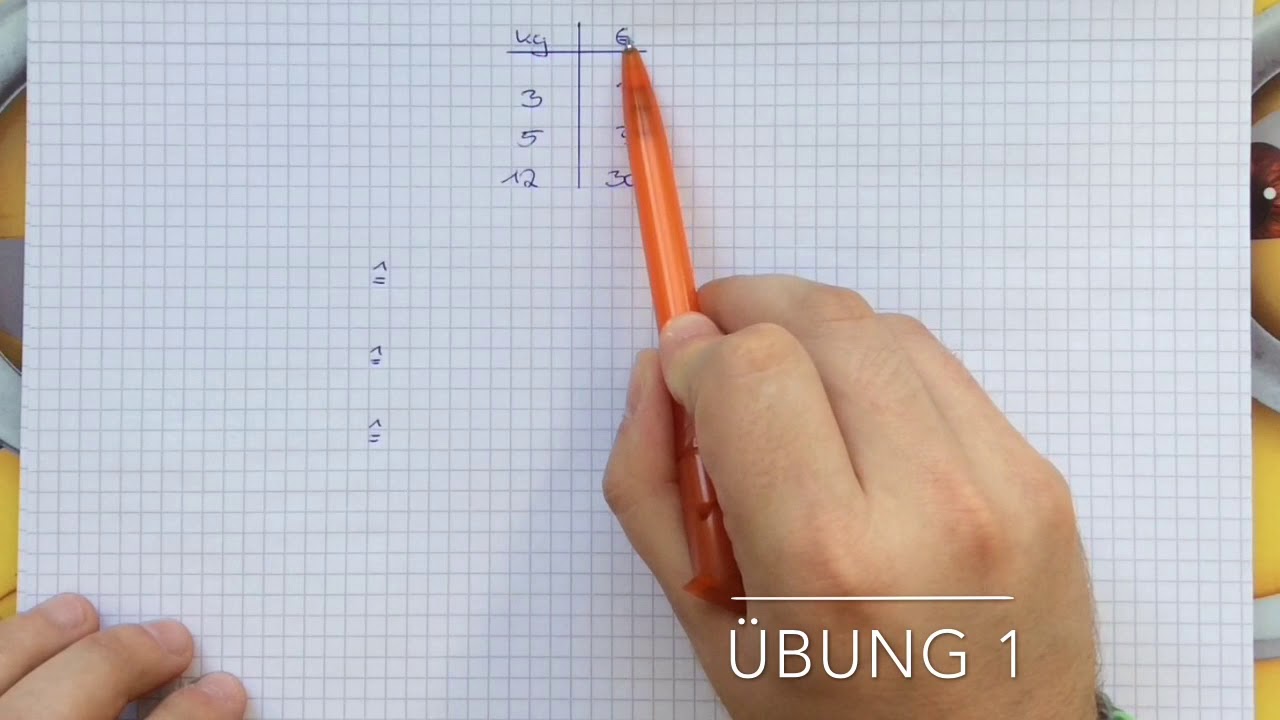 kg €
3
5
12 30
≙
≙
≙
ÜBUNG 1